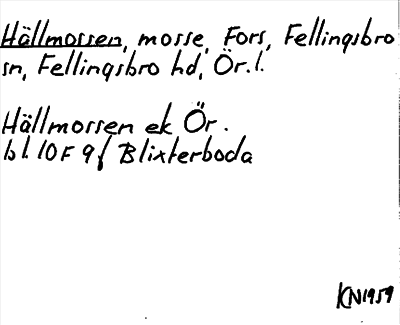 Hällmossen, mosse, Fors, Fellingsbro
sn, Fellingsbro hd, Ör.l.
Hällmossen ek Ör.
bl. 10F 9f Blixterboda
KN1959